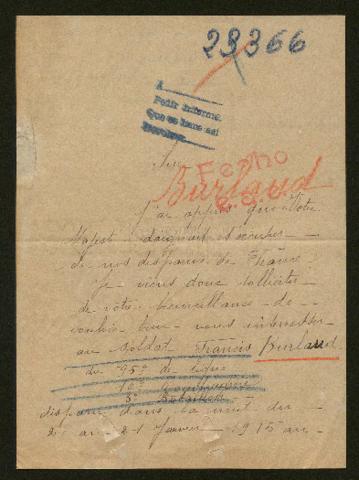 23366
A
Pedir informe
Que se hace así
Sire
Fecho
Burlaud
J'ai appris que Votre
Majesté daignait s'occuper
de nos disparus de France
je viens donc solliciter
de votre bienveillance de
vouloir bien vous intéresser
au soldat Francis Burlaud
du 95e de ligne
disparu dans la nuit du
au 21 Janvier 1915 au